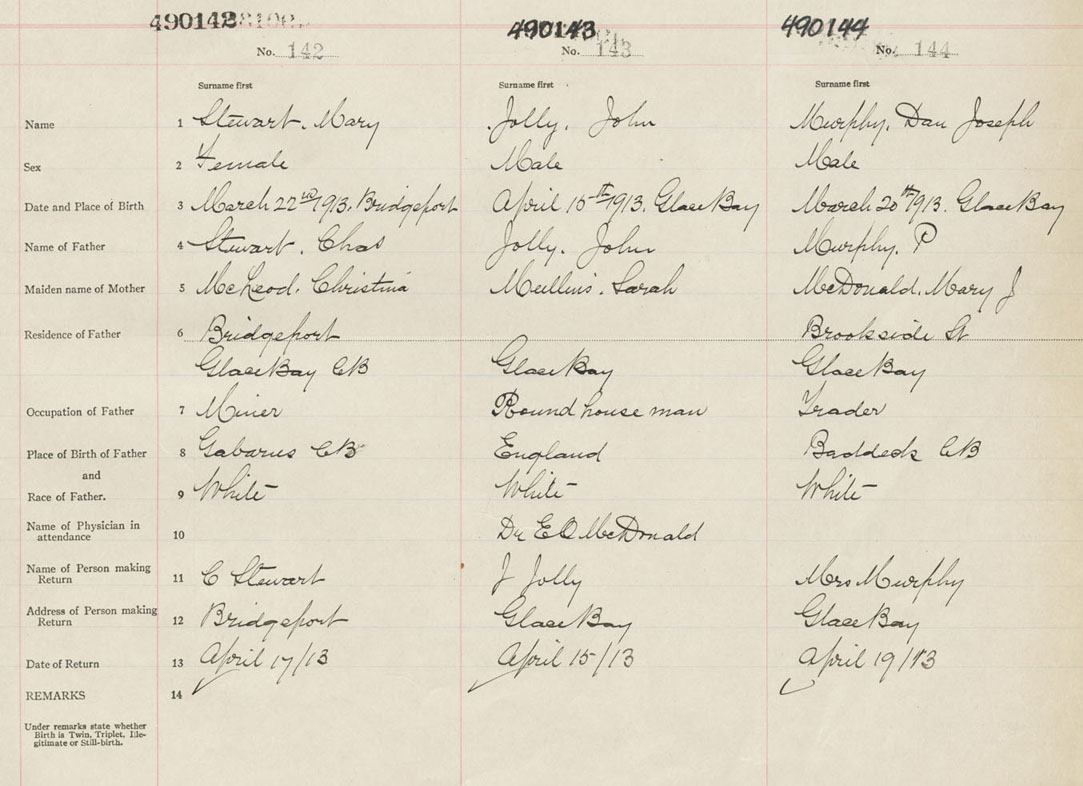 490142 490143 490144
No. 142 No. 143 No. 144
Surname first Surname first Surname first
Name 1 Stewart. Mary Jolly. John Murphy. Dan Joseph
Sex 2 Female Male Male
Date and Place of Birth 3 March 22nd 1913. Bridgeport April 15th 1913. Glace Bay March 20th 1913. Glace Bay
Name of Father 4 Stewart. Chas Jolly. John Murphy. P
Maiden name of Mother 5 McLeod. Christina Mullins. Sarah McDonald. Mary J
Residence of Father 6 Bridgeport Brookside St
Glace Bay CB Glace Bay Glace Bay
Occupation of Father 7 Miner Round house man Trader
Place of Birth of Father 8 Gabarus CB England Baddeck CB
and
Race of Father. 9 White White White
Name of Physician in
attendance 10 Dr E O McDonald
Name of Person making
Return 11 C Stewart J Jolly Mrs Murphy
Address of Person making
Return 12 Bridgeport Glace Bay Glace Bay
Date of Return 13 April 17/13 April 15/13 April 19/13
REMARKS 14
Under remarks state whether
Birth is Twin, Triplet, Ille-
gitimate or Still-birth.